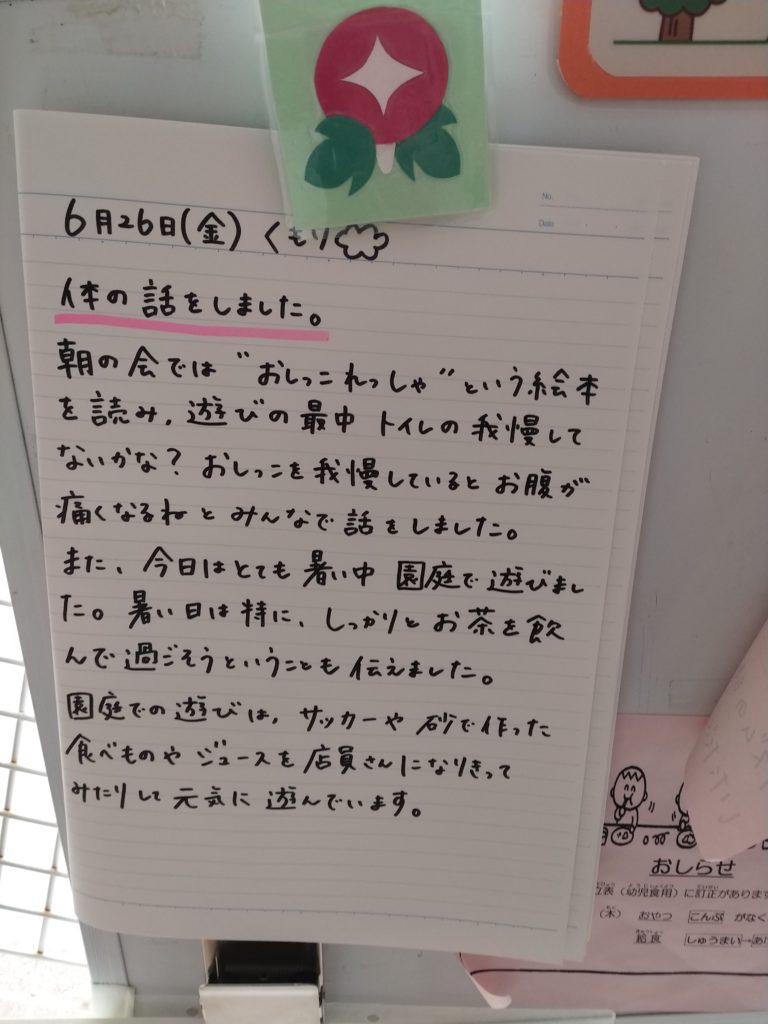 No.
Date
6月26日(金) くもり
体の話をしました。
朝の会では "おしっこれっしゃ" という絵本
を読み、遊びの最中 トイレの我慢して
ないかな? おしっこを我慢していると お腹が
痛くなるねと みんなで話をしました。
また、今日はとても暑い中 園庭で遊びまし
た。暑い日は特に、しっかりとお茶を飲
んで過ごそうということも伝えました。
園庭での遊びは、サッカーや 砂で作った
食べものや ジュースを店員さんになりきって
みたりして 元気に遊んでいます。
おしらせ
表(幼児食用)に訂正があります
(木) おやつ こんぶ がなく
給食 しゅうまい→あ